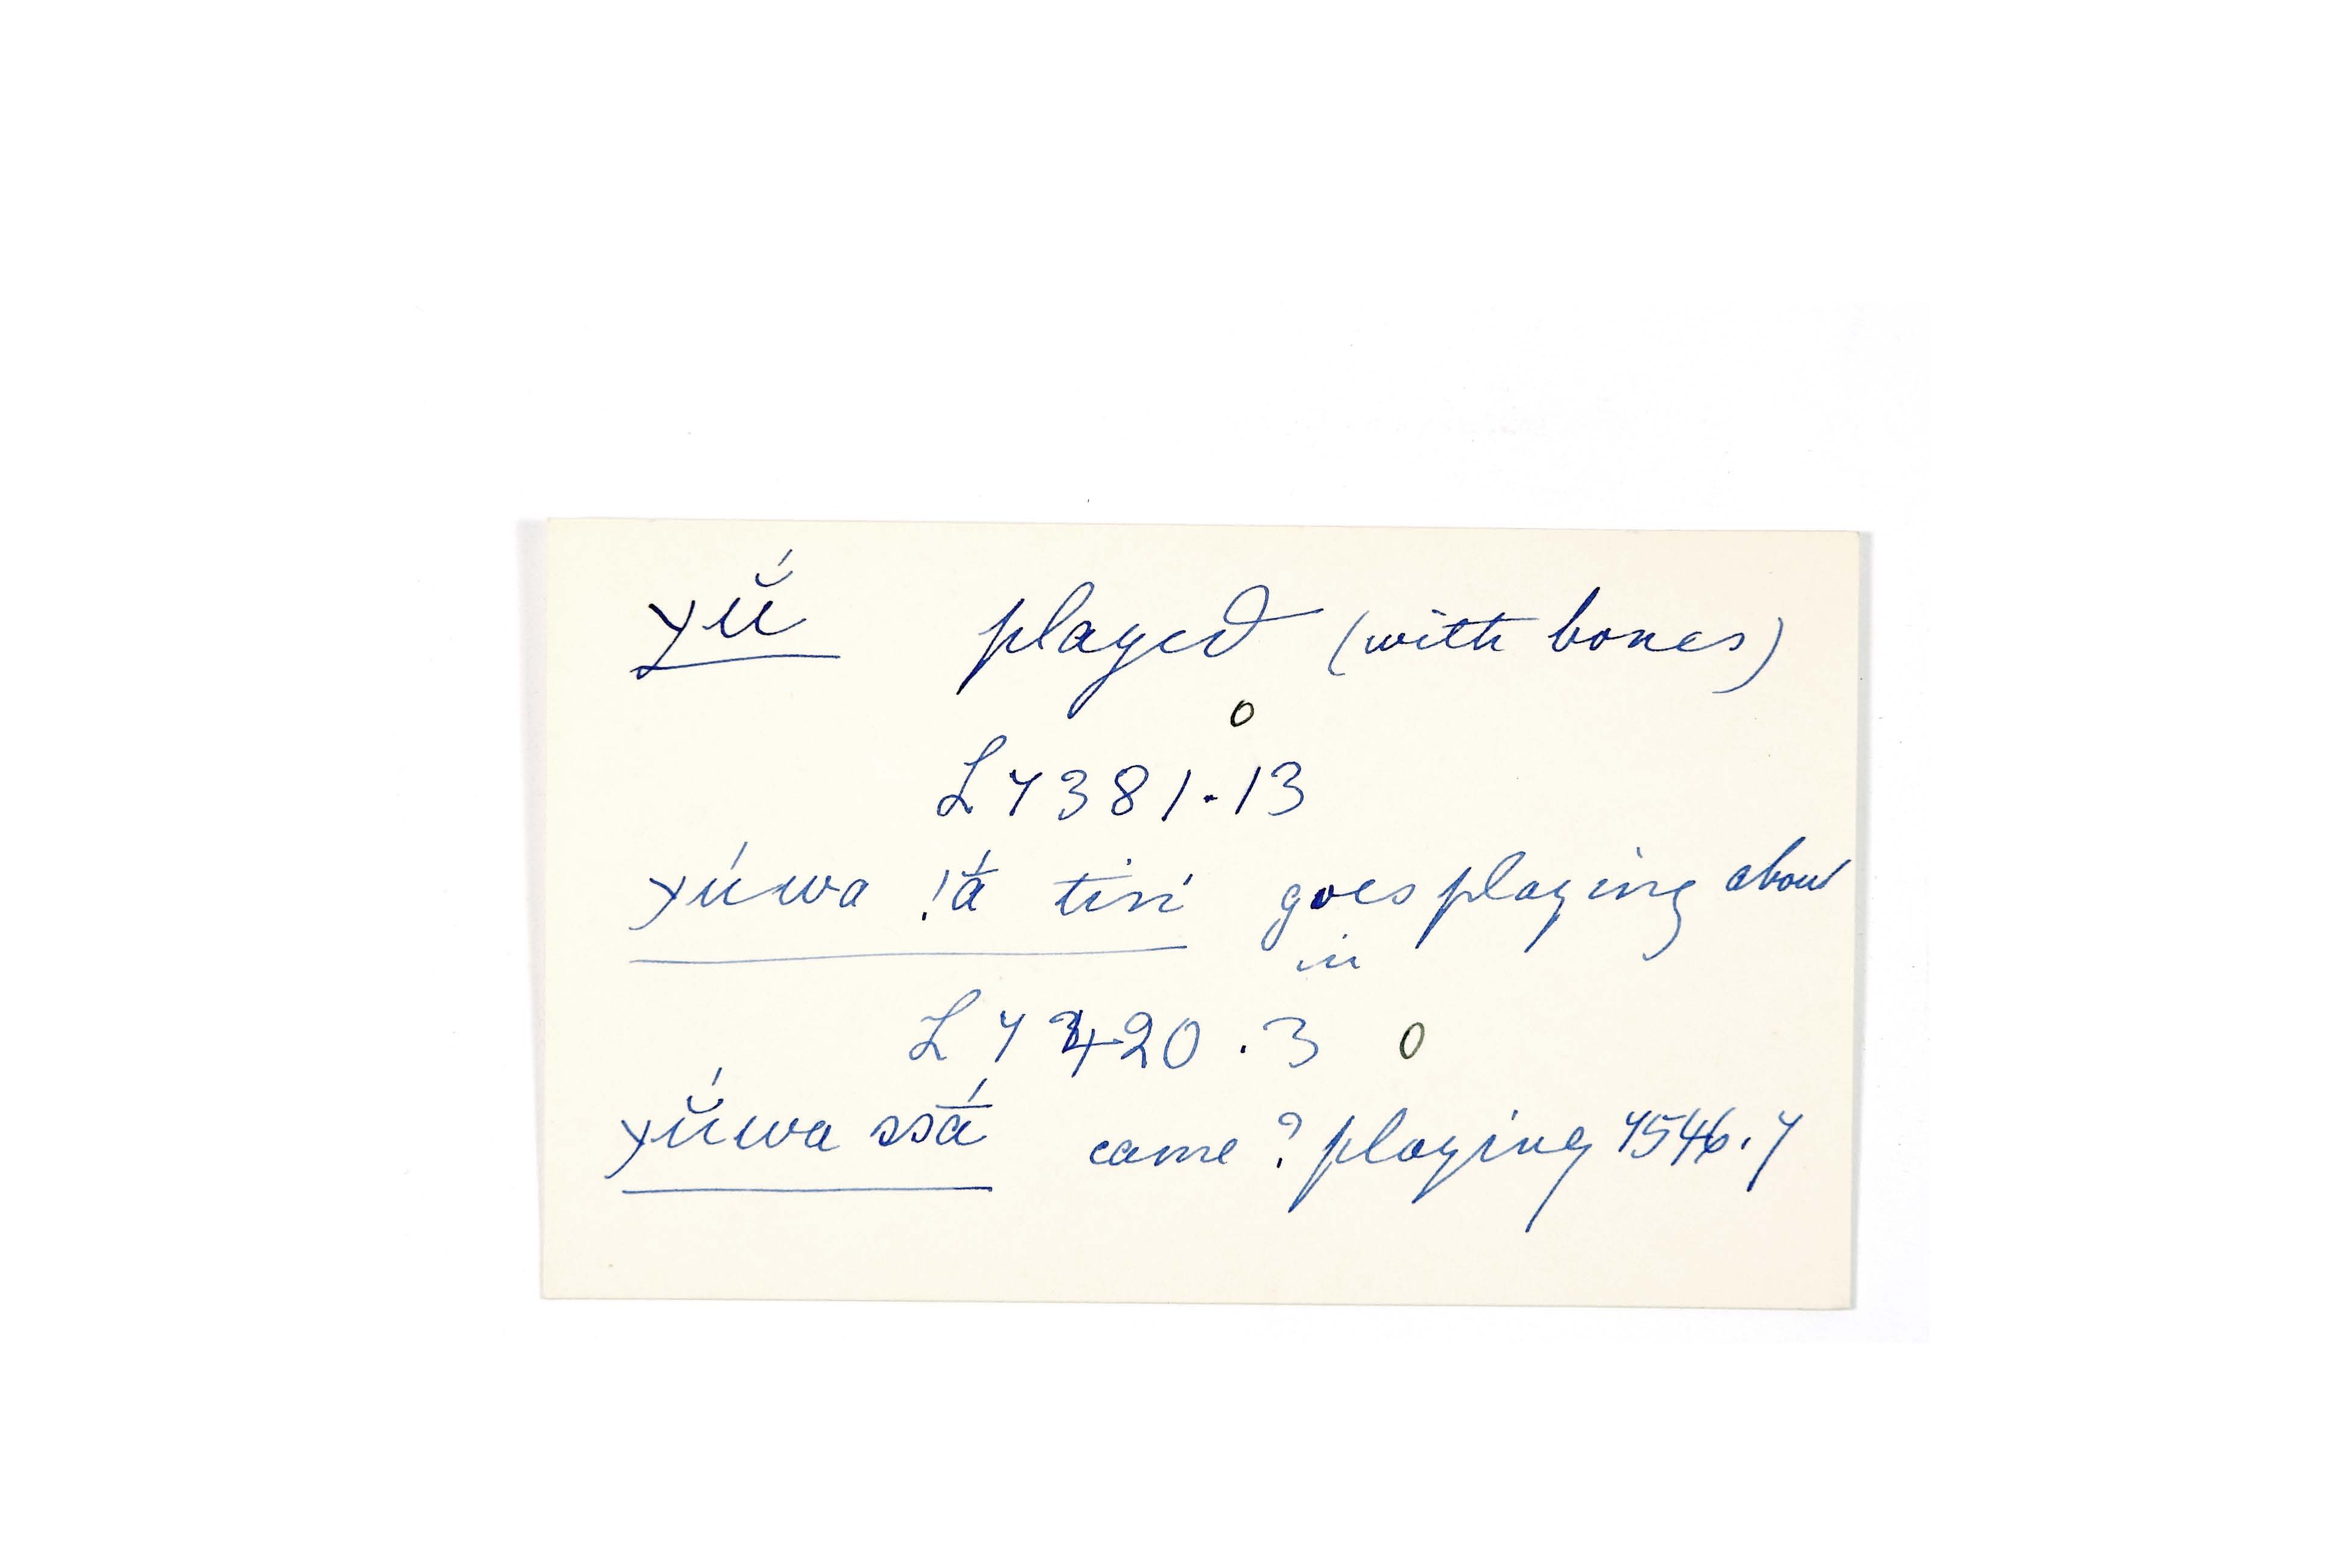 χŭ́ played (with bones)
o
L7381.13
χúwa !ā́ tiń goes playing about
in
L7420.3 o
χŭ́wa ssā́ came ? playing 7546.7